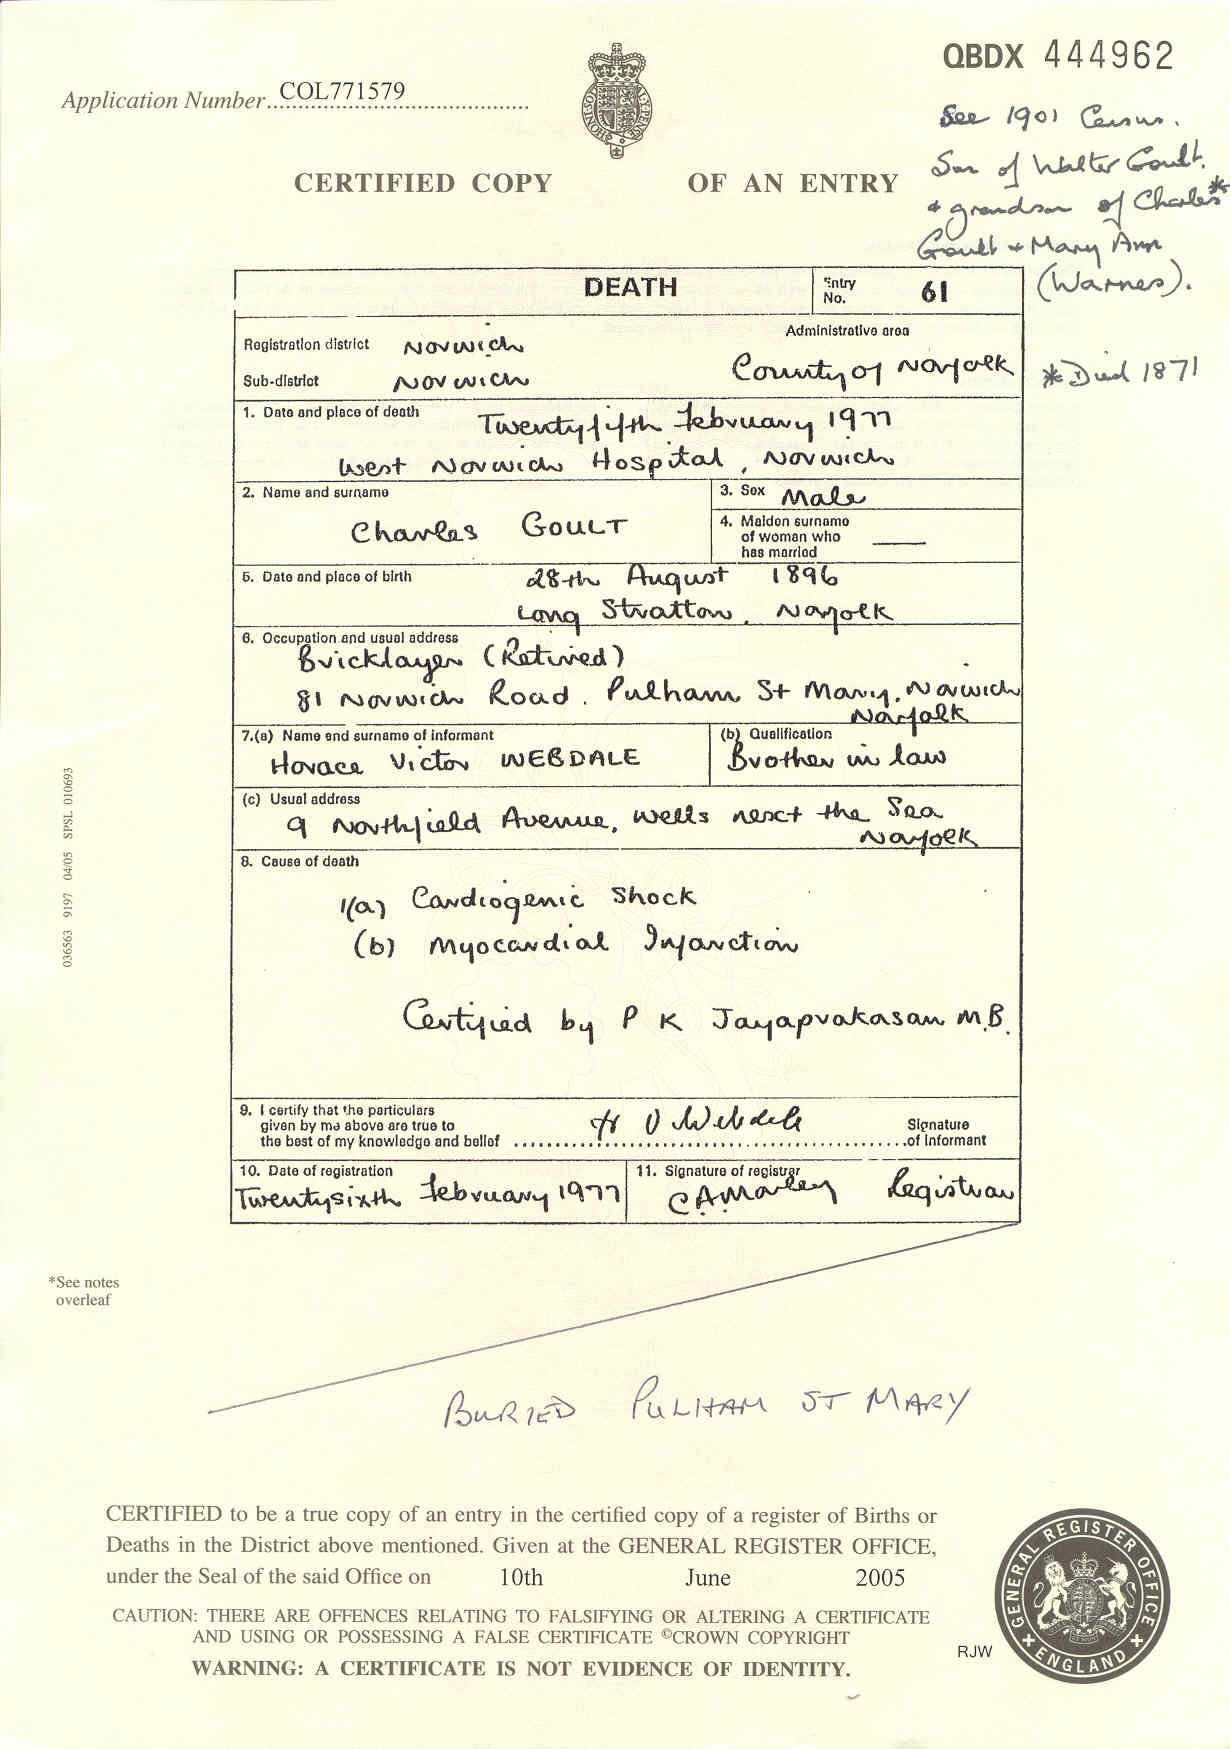 QBDX 444962
Application Number COL771579
See 1901 Census.
Son of Walter Goult.
+ grandson of Charles*
Goult + Mary Ann
(Warnes).
* Died 1871
CERTIFIED COPY OF AN ENTRY
DEATH Entry No. 61
Registration district Norwich Administrative area
Sub-district Norwich County of Norfolk
1. Date and place of death Twentyfifth February 1977
West Norwich Hospital, Norwich
2. Name and surname Charles GOULT
3. Sex Male
4. Maiden surname
of woman who
has married
5. Date and place of birth 28th August 1896
Long Stratton, Norfolk
6. Occupation and usual address
Bricklayer (Retired)
81 Norwich Road. Pulham St Mary, Norwich
Norfolk
7.(a) Name and surname of informant
Horace Victor WEBDALE
(b) Qualification
Brother in law
(c) Usual address
9 Northfield Avenue, Wells next the Sea
Norfolk
8. Cause of death
1(a) Cardiogenic Shock
(b) Myocardial Infarction
Certified by P K Jayaprakasan M.B.
9. I certify that the particulars
given by me above are true to
the best of my knowledge and belief H V Webdale Signature
of informant
10. Date of registration
Twentysixth February 1977
11. Signature of registrar
C A Marley Registrar
036563 9197 04/05 SPSL 010693
*See notes
overleaf
BURIED PULHAM ST MARY
CERTIFIED to be a true copy of an entry in the certified copy of a register of Births or
Deaths in the District above mentioned. Given at the GENERAL REGISTER OFFICE,
under the Seal of the said Office on 10th June 2005
CAUTION: THERE ARE OFFENCES RELATING TO FALSIFYING OR ALTERING A CERTIFICATE
AND USING OR POSSESSING A FALSE CERTIFICATE ©CROWN COPYRIGHT
WARNING: A CERTIFICATE IS NOT EVIDENCE OF IDENTITY.
RJW
GENERAL REGISTER OFFICE
ENGLAND